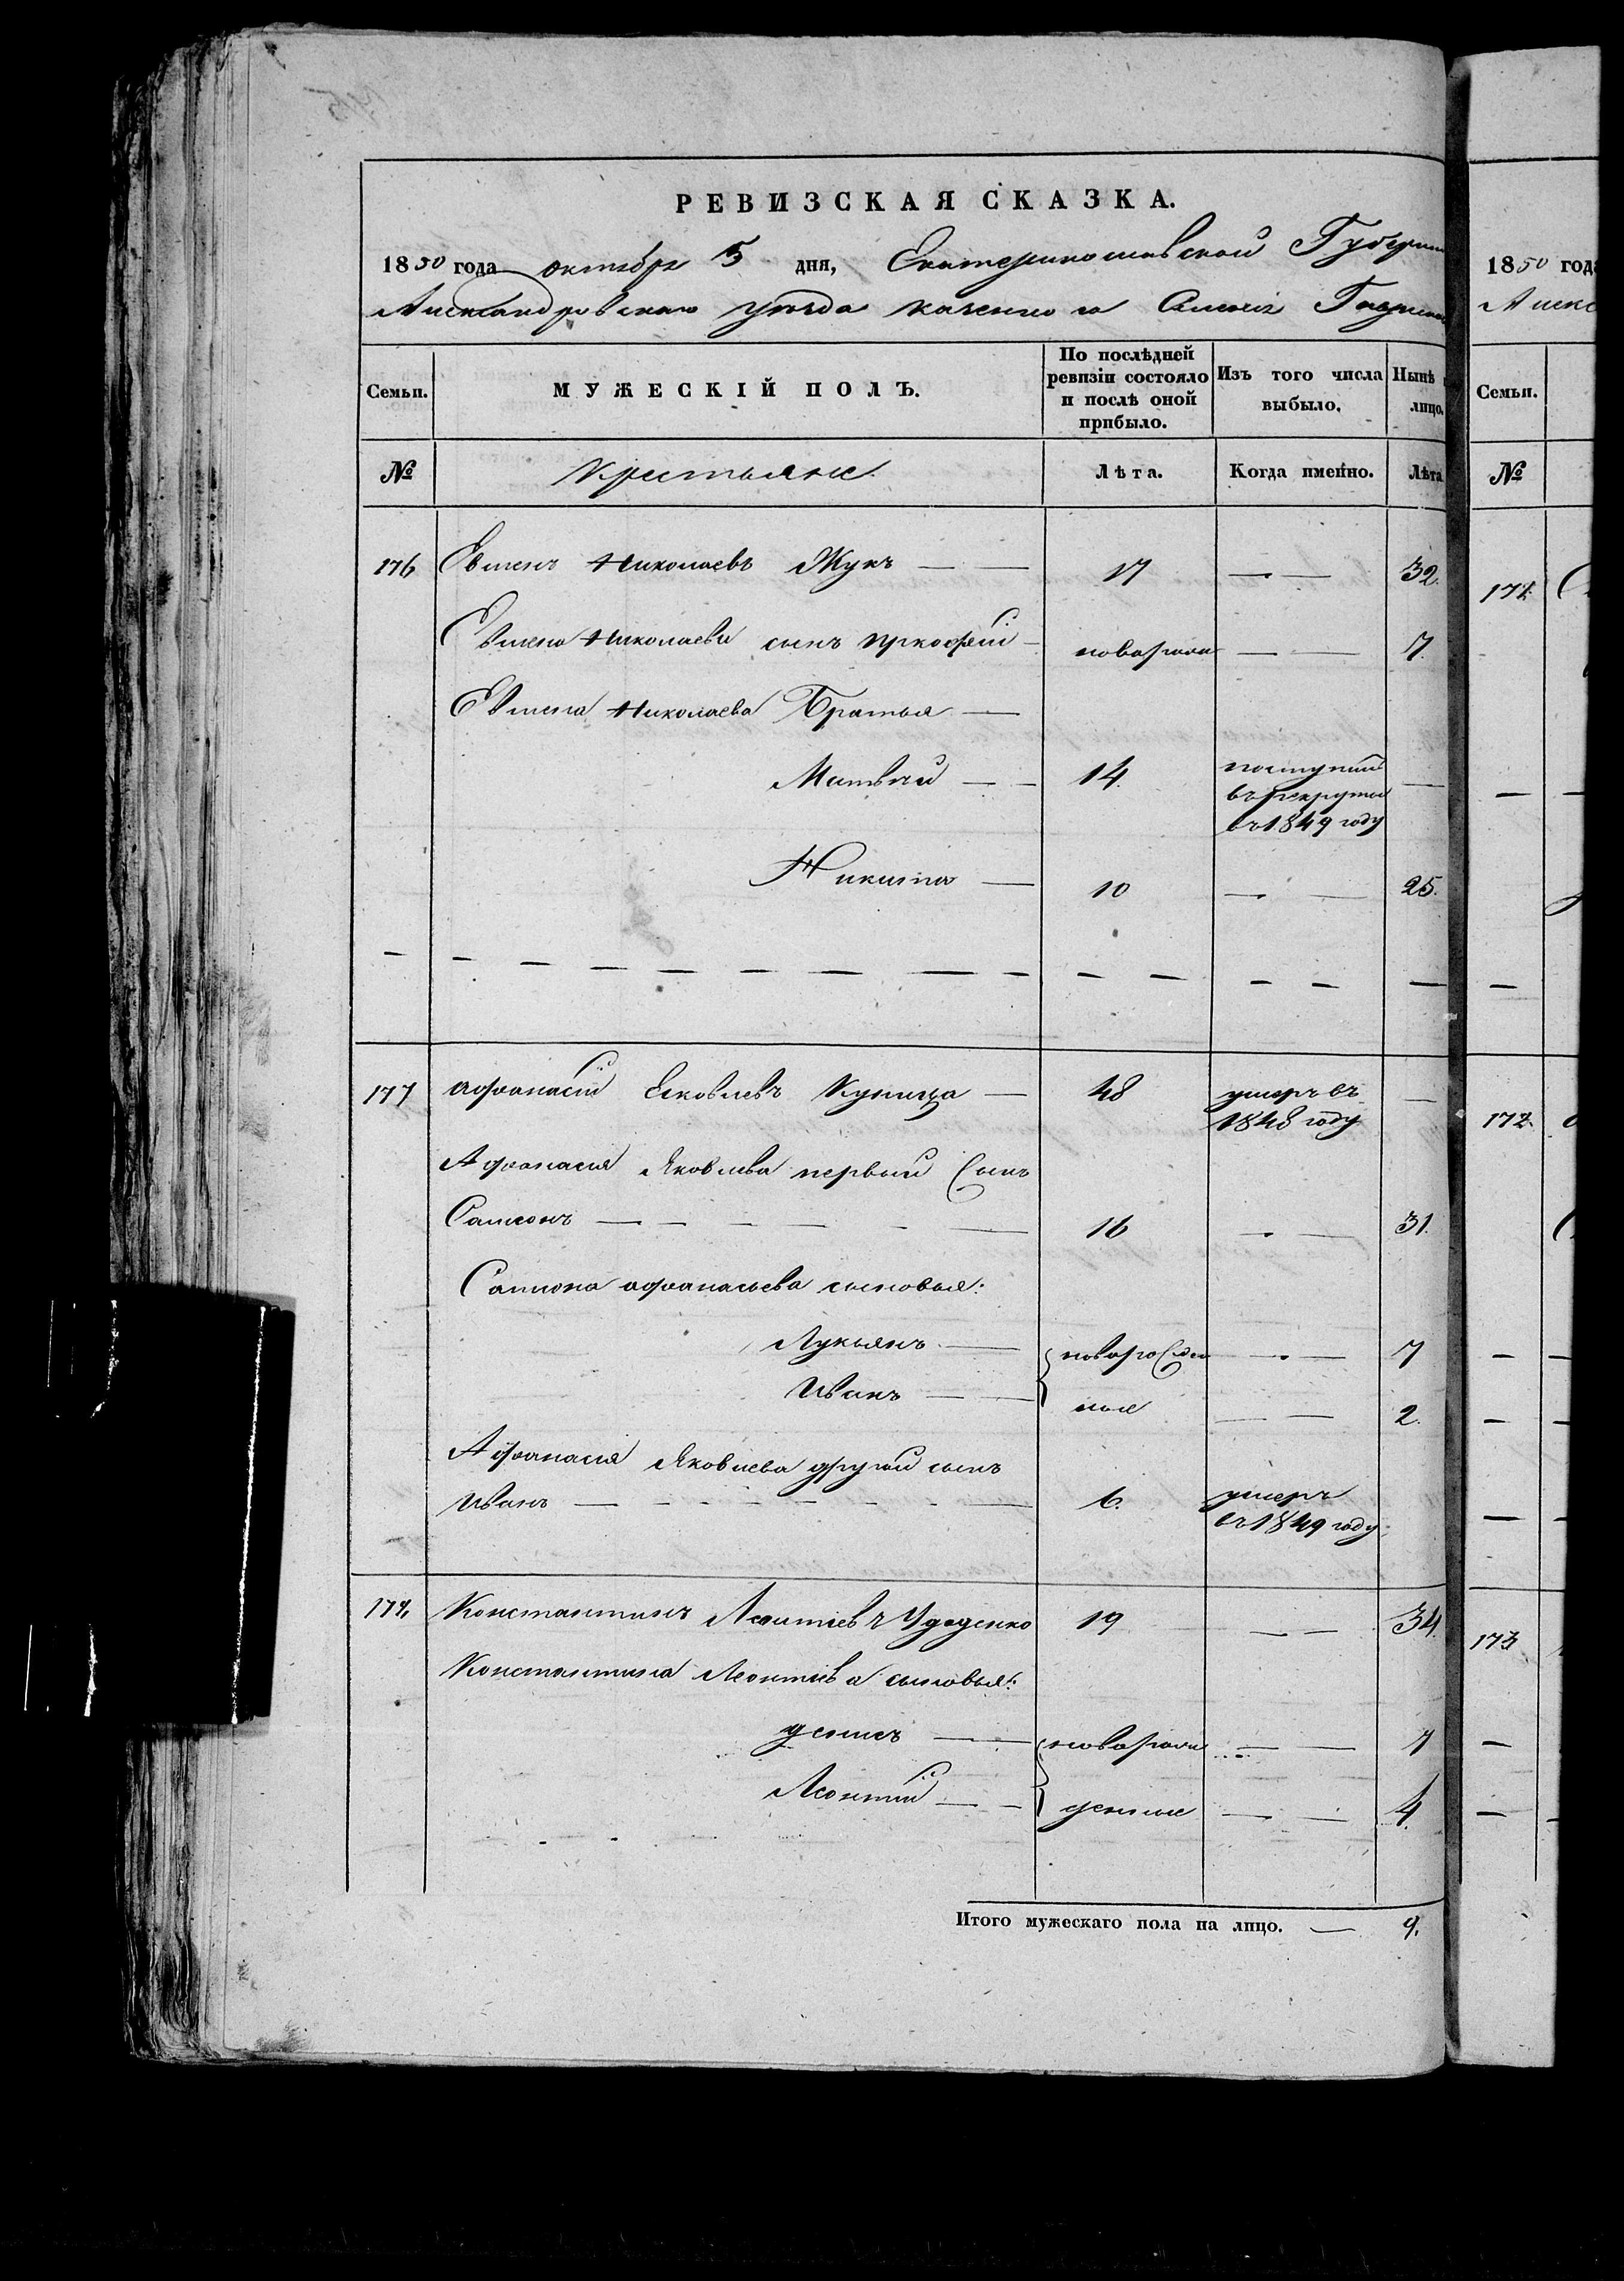 РЕВИЗСКАЯ СКАЗКА.
1850 года октября 5 дня, Екатеринославской Губерни
Александровскаго уѣзда казеннаго Селенія
Семьи.
МУЖЕСКІЙ ПОЛЪ.
По послѣдней ревизіи состояло и послѣ оной прибыло.
Изъ того числа выбыло.
Нынѣ
лицо.
№
Крестьяне
Лѣта.
Когда именно.
Лѣта
176 Евменъ Николаевъ Жукъ — — 17 — — 32.
Евмена Николаева сынъ Прокофій — — — 7.
Евмена Николаева Братья —
Матвѣй — — 14. поступилъ —
въ рекруты
въ 1849 году
Никита — 10 — — 25.
177 Афанасій Яковлевъ Куница — 48 умеръ въ —
1848 году
Афанасія Яковлева первый Сынъ
Самсонъ — — — — — — 16 — — 31.
Самсона Афанасьева сыновья:
Лукьянъ — новорожден — — 7
Иванъ — — ные — — 2.
Афанасія Яковлева другой сынъ
Иванъ — — — — — — — 6. умеръ
въ 1849 году
178. Константинъ Леонтіевъ Удоденко 19 — — 34.
Константина Леонтіева сыновья:
Денисъ — — новорож — — 7
Леонтій — — денные — — 4.
Итого мужескаго пола на лицо. — 9.
1850 года
Алекс
Семьи.
№
171
172
173